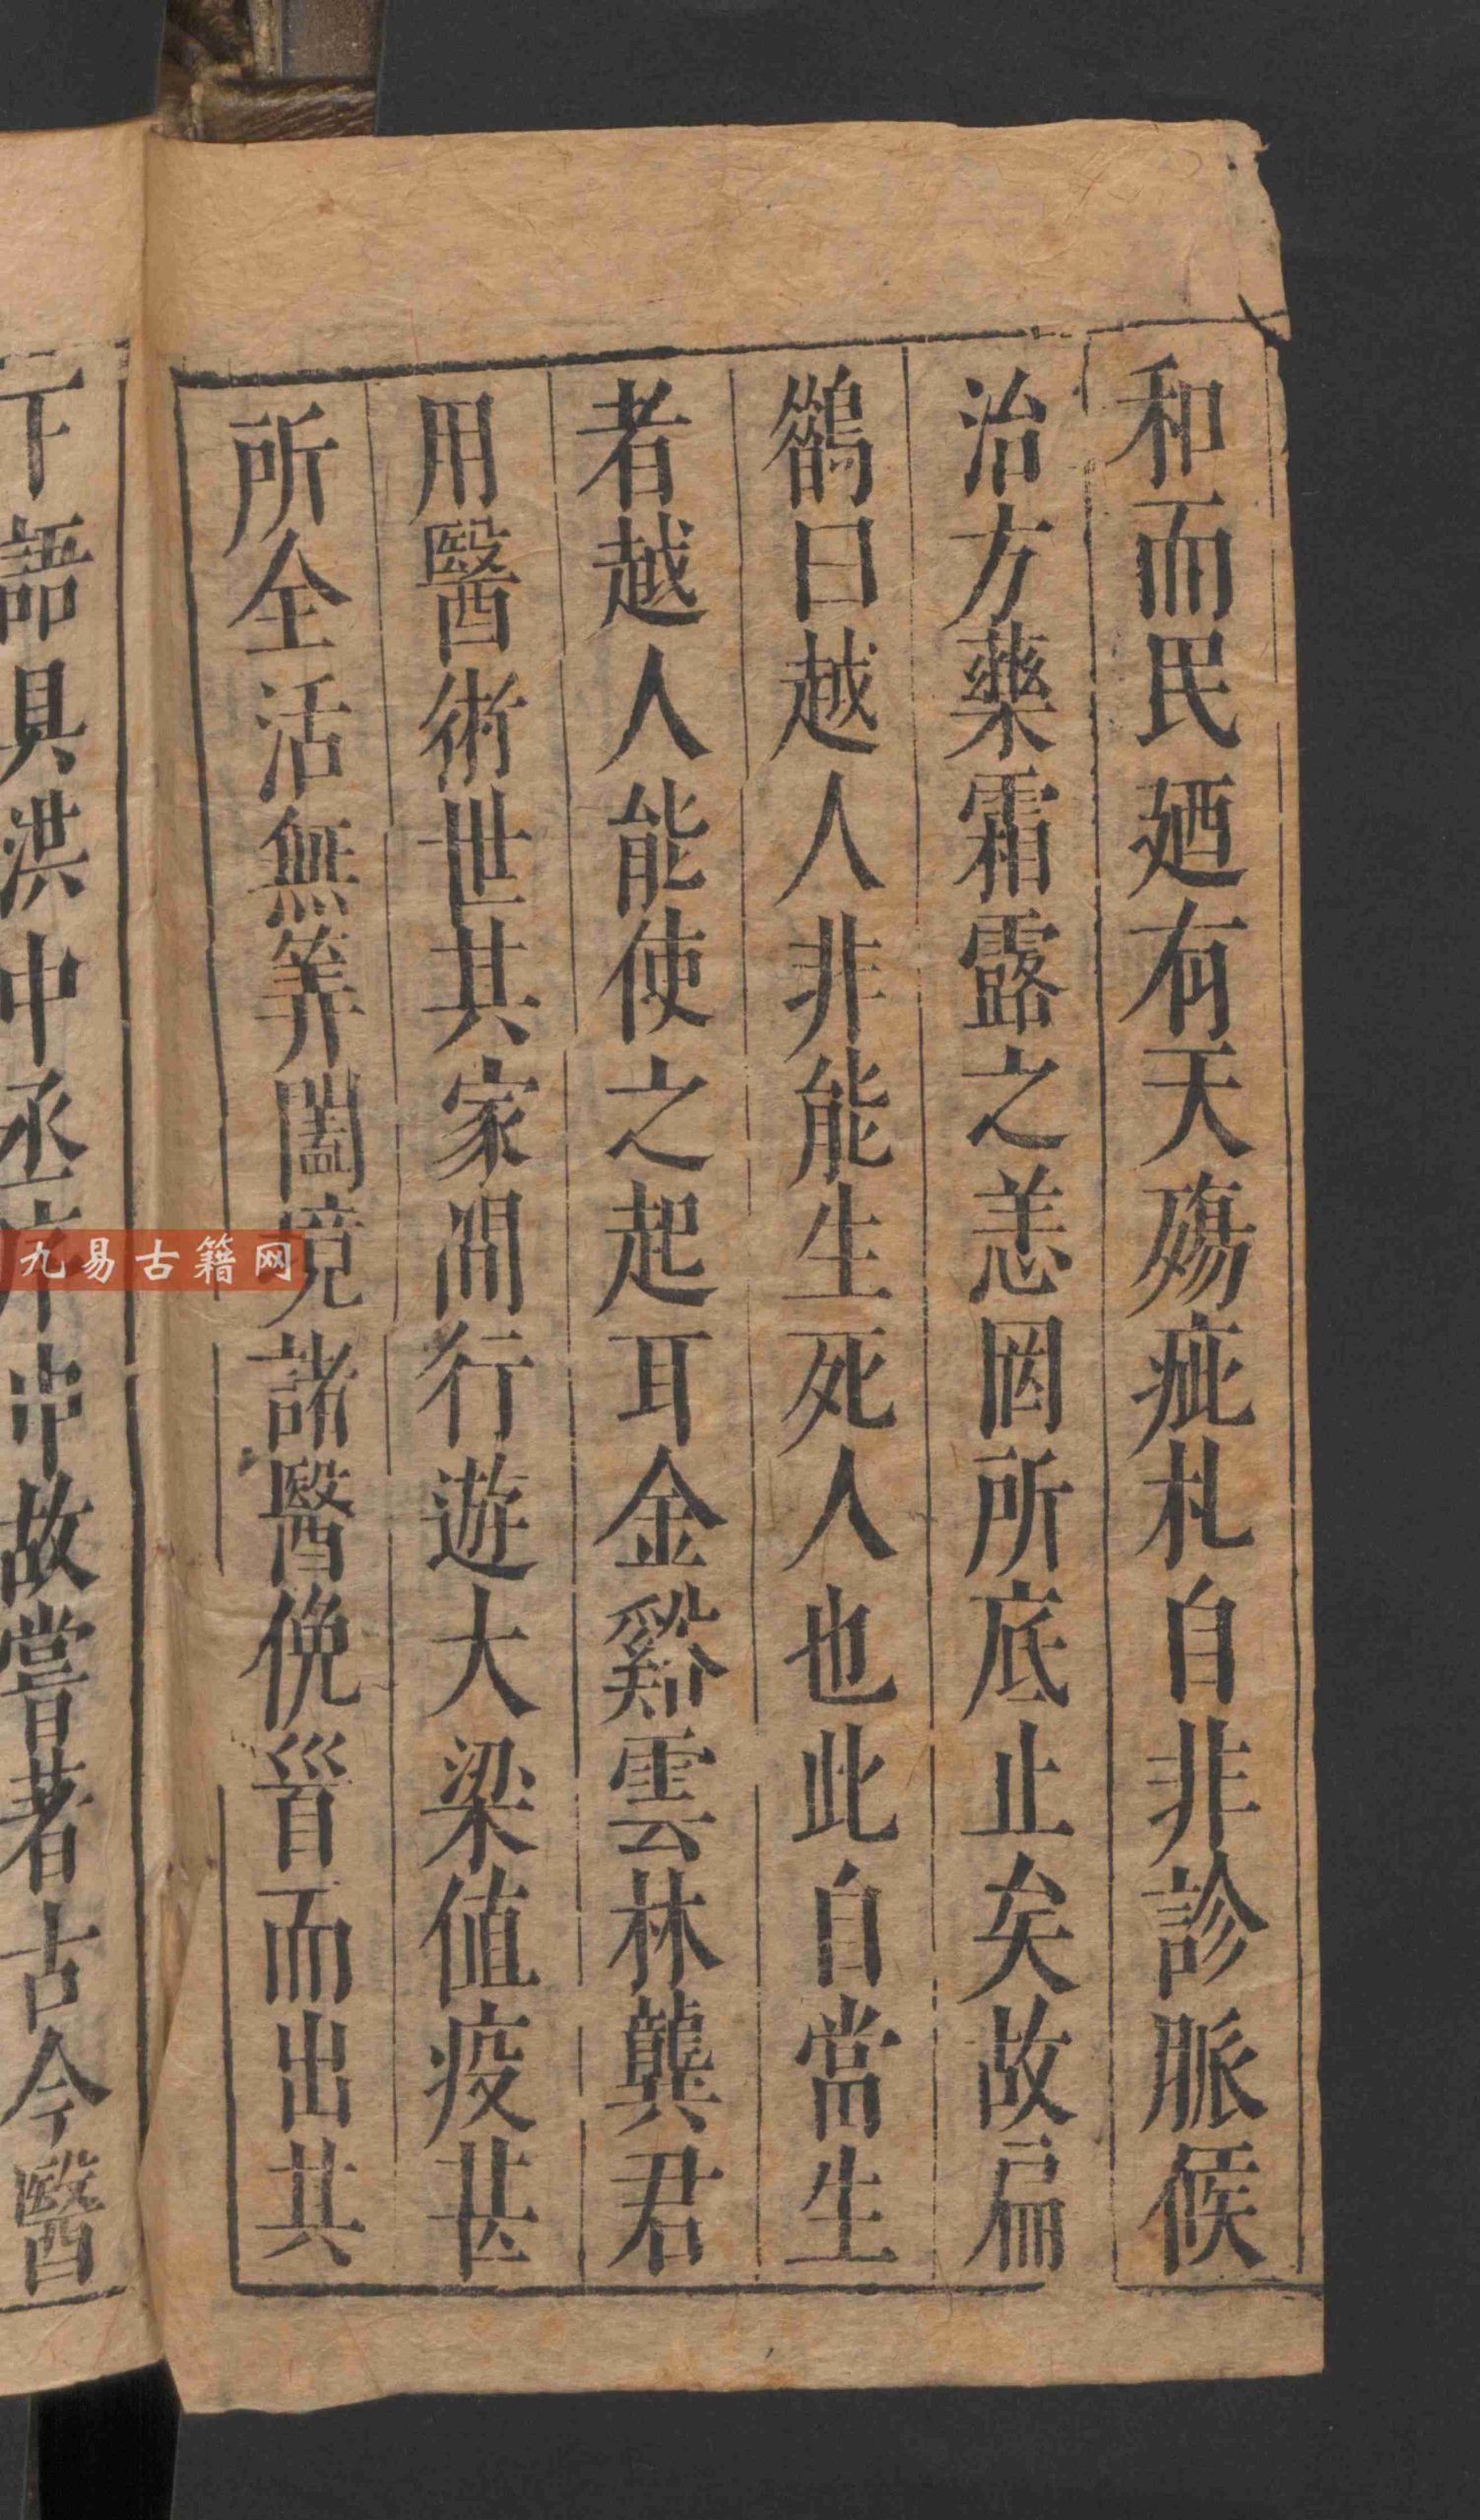 和而民廼有天殤疵札自非診脈候
治方藥霜露之恙罔所底止矣故扁
鶴曰越人非能生死人也此自當生
者越人能使之起耳金谿雲林龔君
用醫術世其家間行遊大梁値疫甚
所全活無筭闔境諸醫俛首而出其
下語具洪中丞序中故嘗著古今醫
九易古籍网